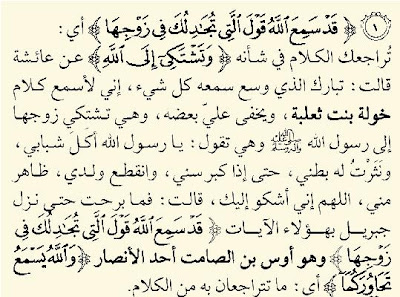 ١ ﴿ قَدْ سَمِعَ ٱللَّهُ قَوْلَ ٱلَّتِى تُجَٰدِلُكَ فِى زَوْجِهَا ﴾ أي:
تُراجعك الكلام في شأنه ﴿ وَتَشْتَكِىٓ إِلَى ٱللَّهِ ﴾ عن عائشة
قالت: تبارك الذي وسع سمعه كل شيء، إني لأسمع كلام
خولة بنت ثعلبة، ويخفى عليّ بعضه، وهي تشتكي زوجها
إلى رسول الله ﷺ وهي تقول: يا رسول الله أكَلَ شبابي،
ونَثَرْتُ له بطني، حتى إذا كبر سني، وانقطع ولدي، ظاهر
مني، اللهم إني أشكو إليك، قالت: فما برحت حتى نزل
جبريل بهؤلاء الآيات ﴿ قَدْ سَمِعَ ٱللَّهُ قَوْلَ ٱلَّتِى تُجَٰدِلُكَ فِى
زَوْجِهَا ﴾ وهو أوس بن الصامت أحد الأنصار ﴿ وَٱللَّهُ يَسْمَعُ
تَحَاوُرَكُمَآ ﴾ أي: ما تتراجعان به من الكلام.